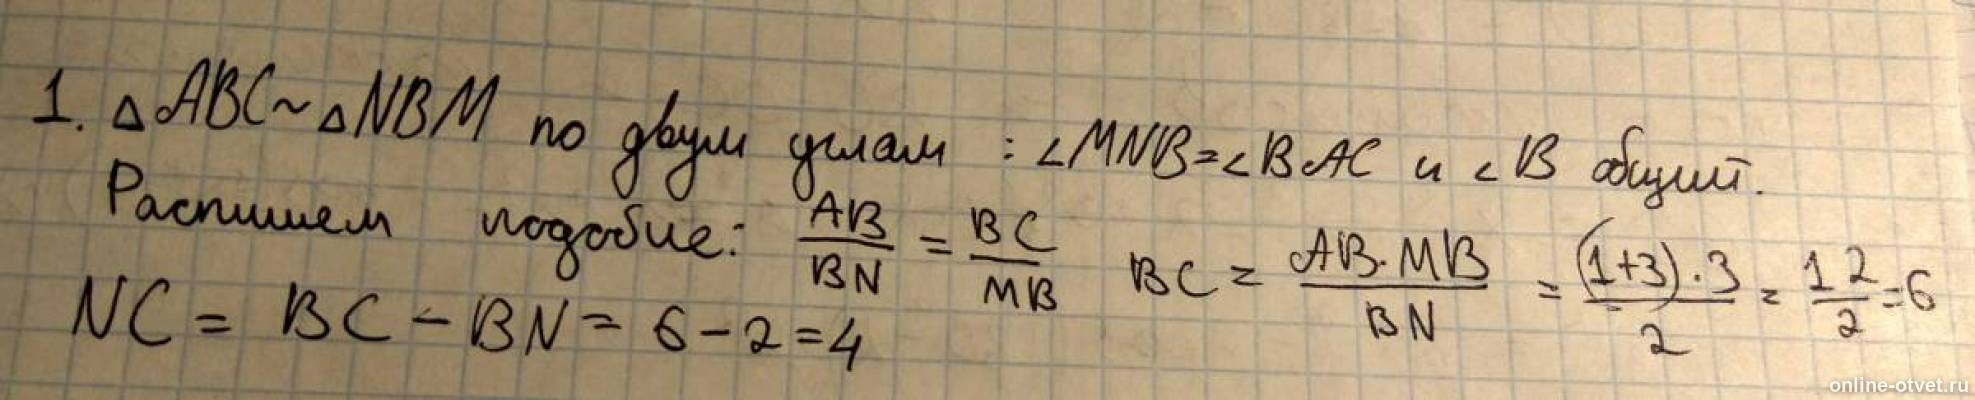 1. △ABC ~ △NBM по двум углам : ∠MNB = ∠BAC и ∠B общий.
Распишем подобие: AB/BN = BC/MB BC = AB·MB/BN = (1+3)·3/2 = 12/2 = 6
NC = BC - BN = 6 - 2 = 4
online-otvet.ru